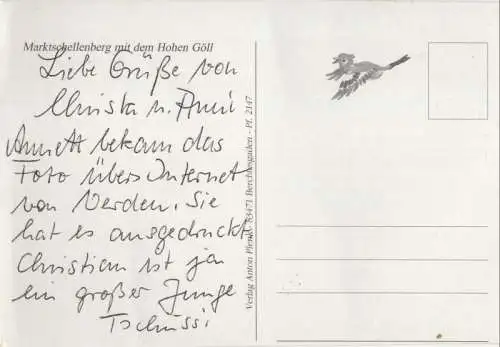 Marktschellenberg mit dem Hohen Göll
Liebe Grüße von
Christa u. Anni
Annett bekam das
Foto übers Internet
von Verden. Sie
hat es ausgedruckt
Christian ist ja
ein großer Junge
Tschüssi
Verlag Anton Plenk, 83471 Berchtesgaden - Pf. 2147